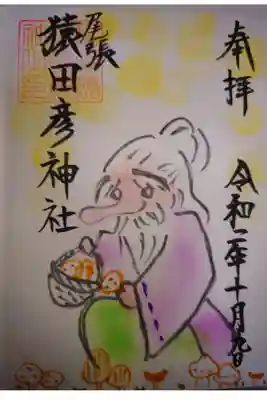 奉拝
令和二年十月九日
尾張
猿田彦神社